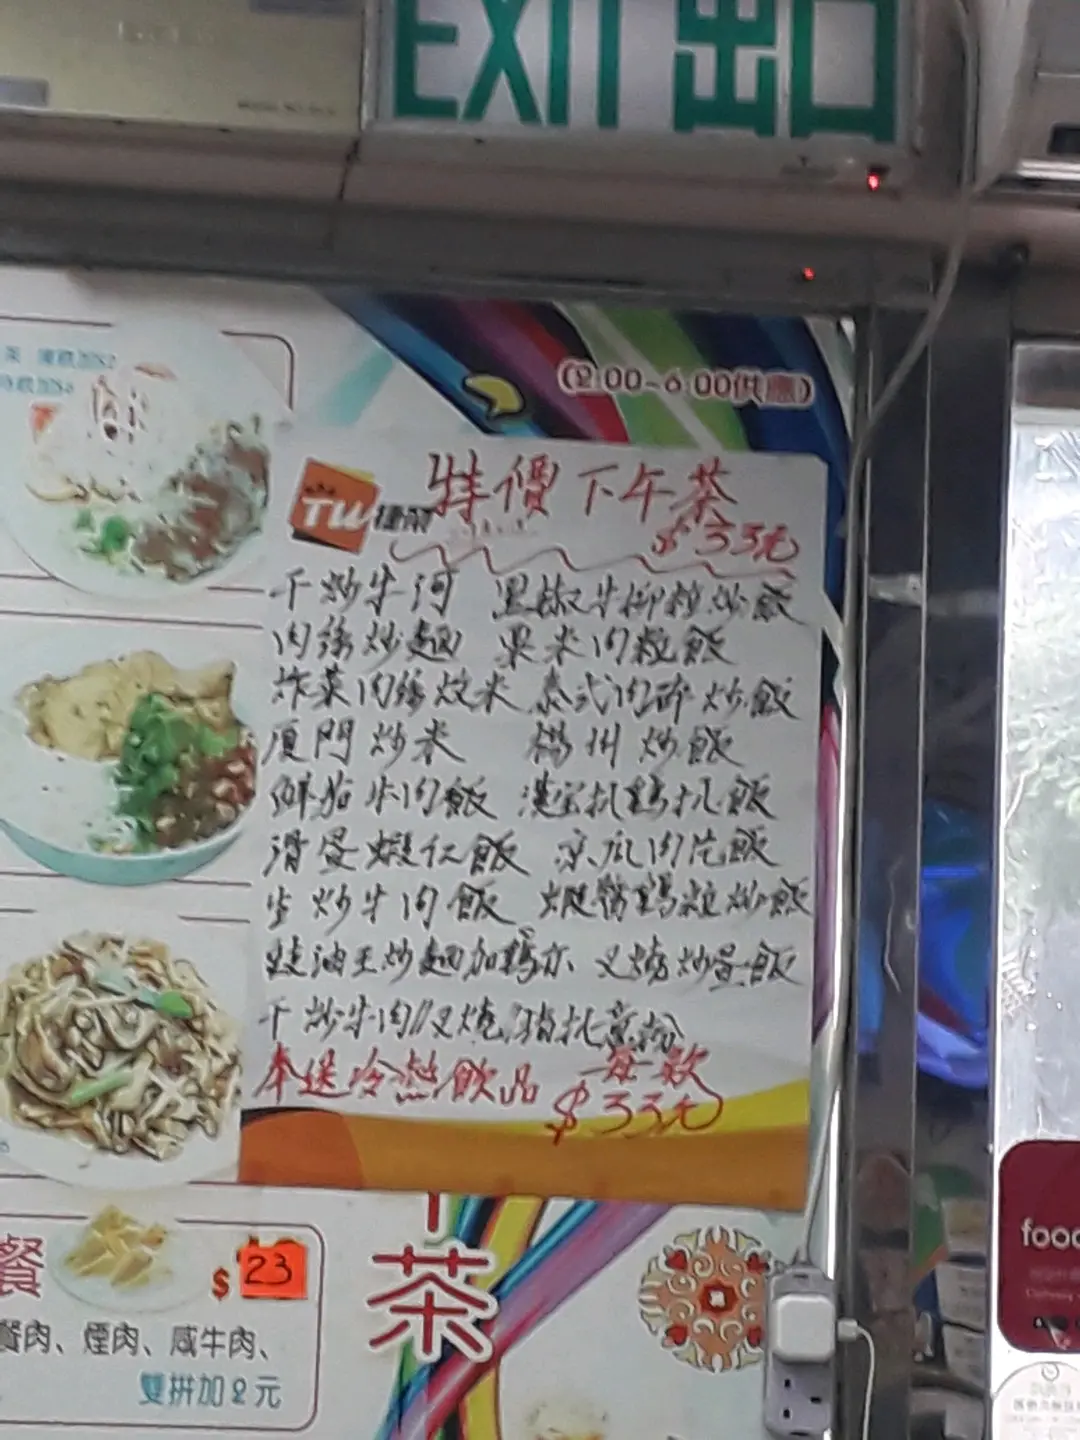 EXIT 出口
(2:00~6:00供應)
TW 捷榮
特價下午茶
$33元
干炒牛河 黑椒牛柳粒炒飯
肉絲炒麵 粟米肉粒飯
炸菜肉絲炆米 泰式肉碎炒飯
廈門炒米 楊州炒飯
鮮茄牛肉飯 漢宝扒鷄扒飯
滑蛋蝦仁飯 凉瓜肉片飯
生炒牛肉飯 鷄粒炒飯
蚝油王炒麵加鷄亦 叉燒炒蛋飯
干炒牛肉/叉燒/猪扒意粉
奉送冷熱飲品 每款
$33元
餐
$23
餐肉、煙肉、咸牛肉、
雙拼加2元
午茶
food